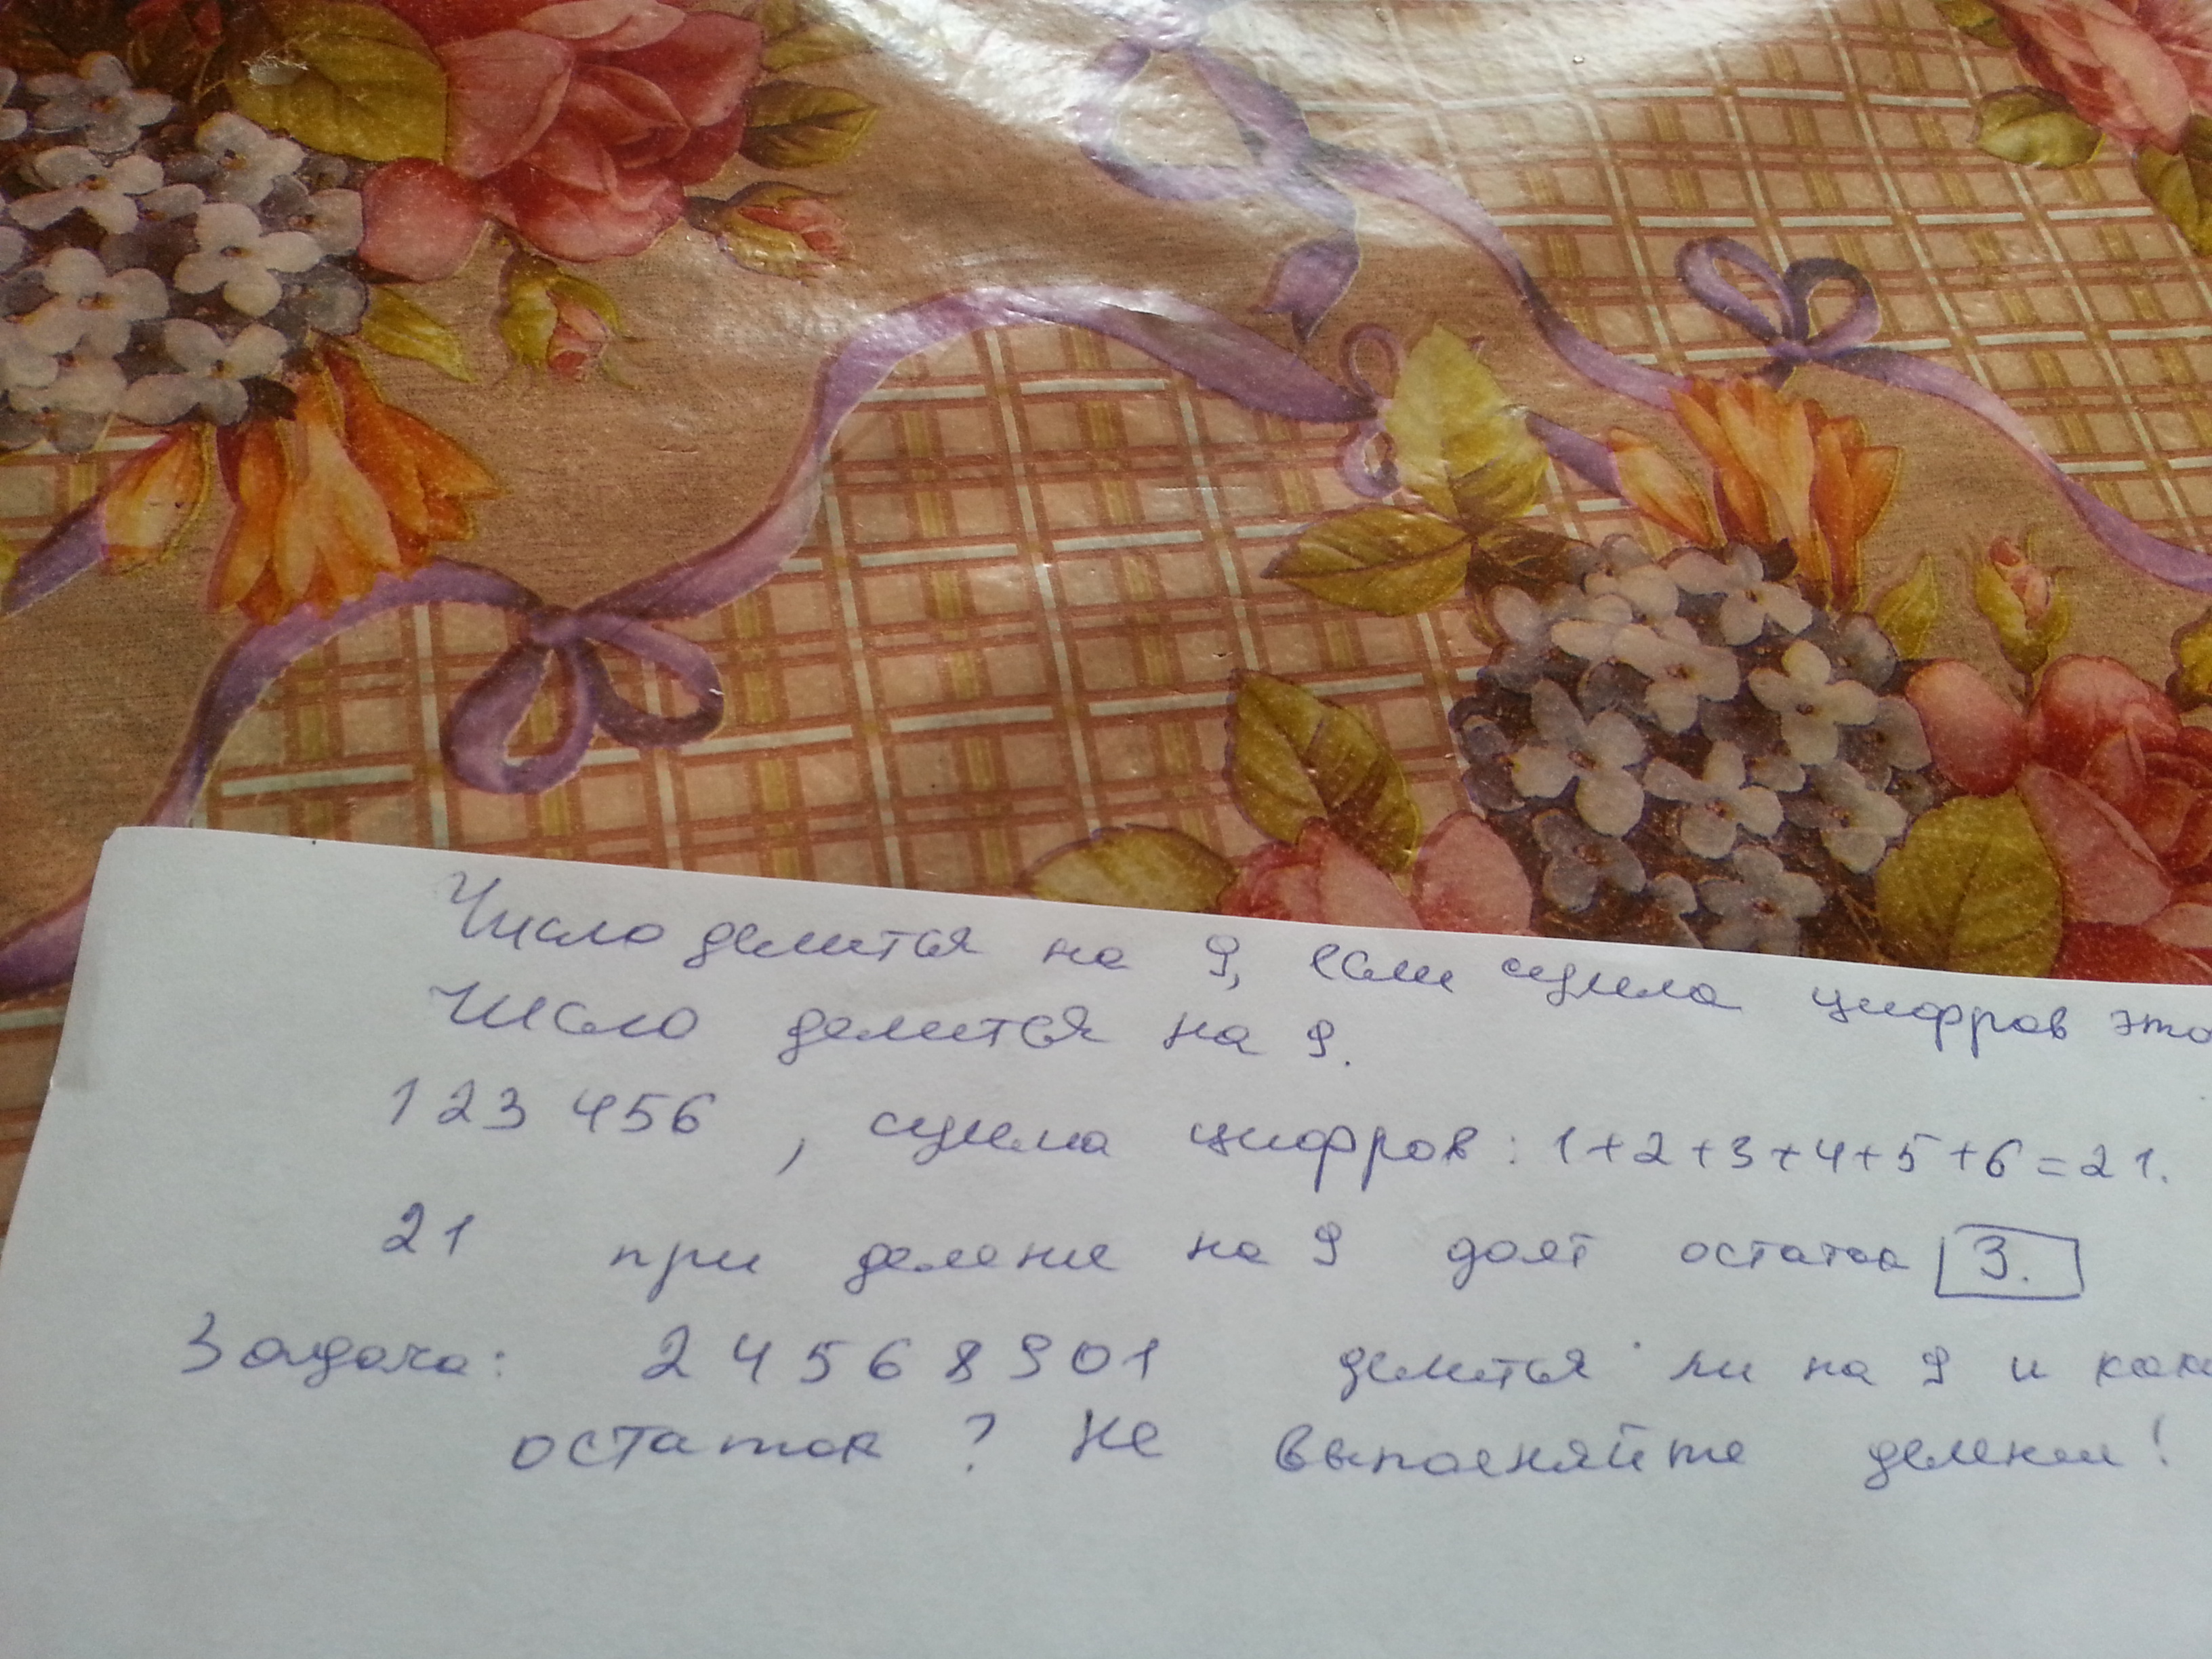 Число делится на 9, если сумма цифров это
число делится на 9.
123 456 , сумма цифров: 1+2+3+4+5+6=21.
21 при деление на 9 даят остаток 3.
Задача: 24568901 делится ли на 9 и как
остаток? Не выполняйте делении!